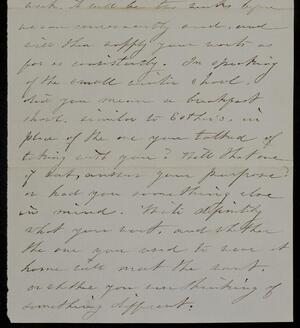 week. It will be two weeks before
we can conveniently send, and
will then supply your wants as
far as consistently. In speaking
of the small winter shawl.
did you mean a breakfast
shawl, similar to Esther's, in
place of the one you talked of
taking with you? Will that one
if sent, answer your purpose?
or had you something else
in mind. Write definitly
what you want, and whether
the one you used to wear at
home will meet the want.
or whether you are thinking of
something different.